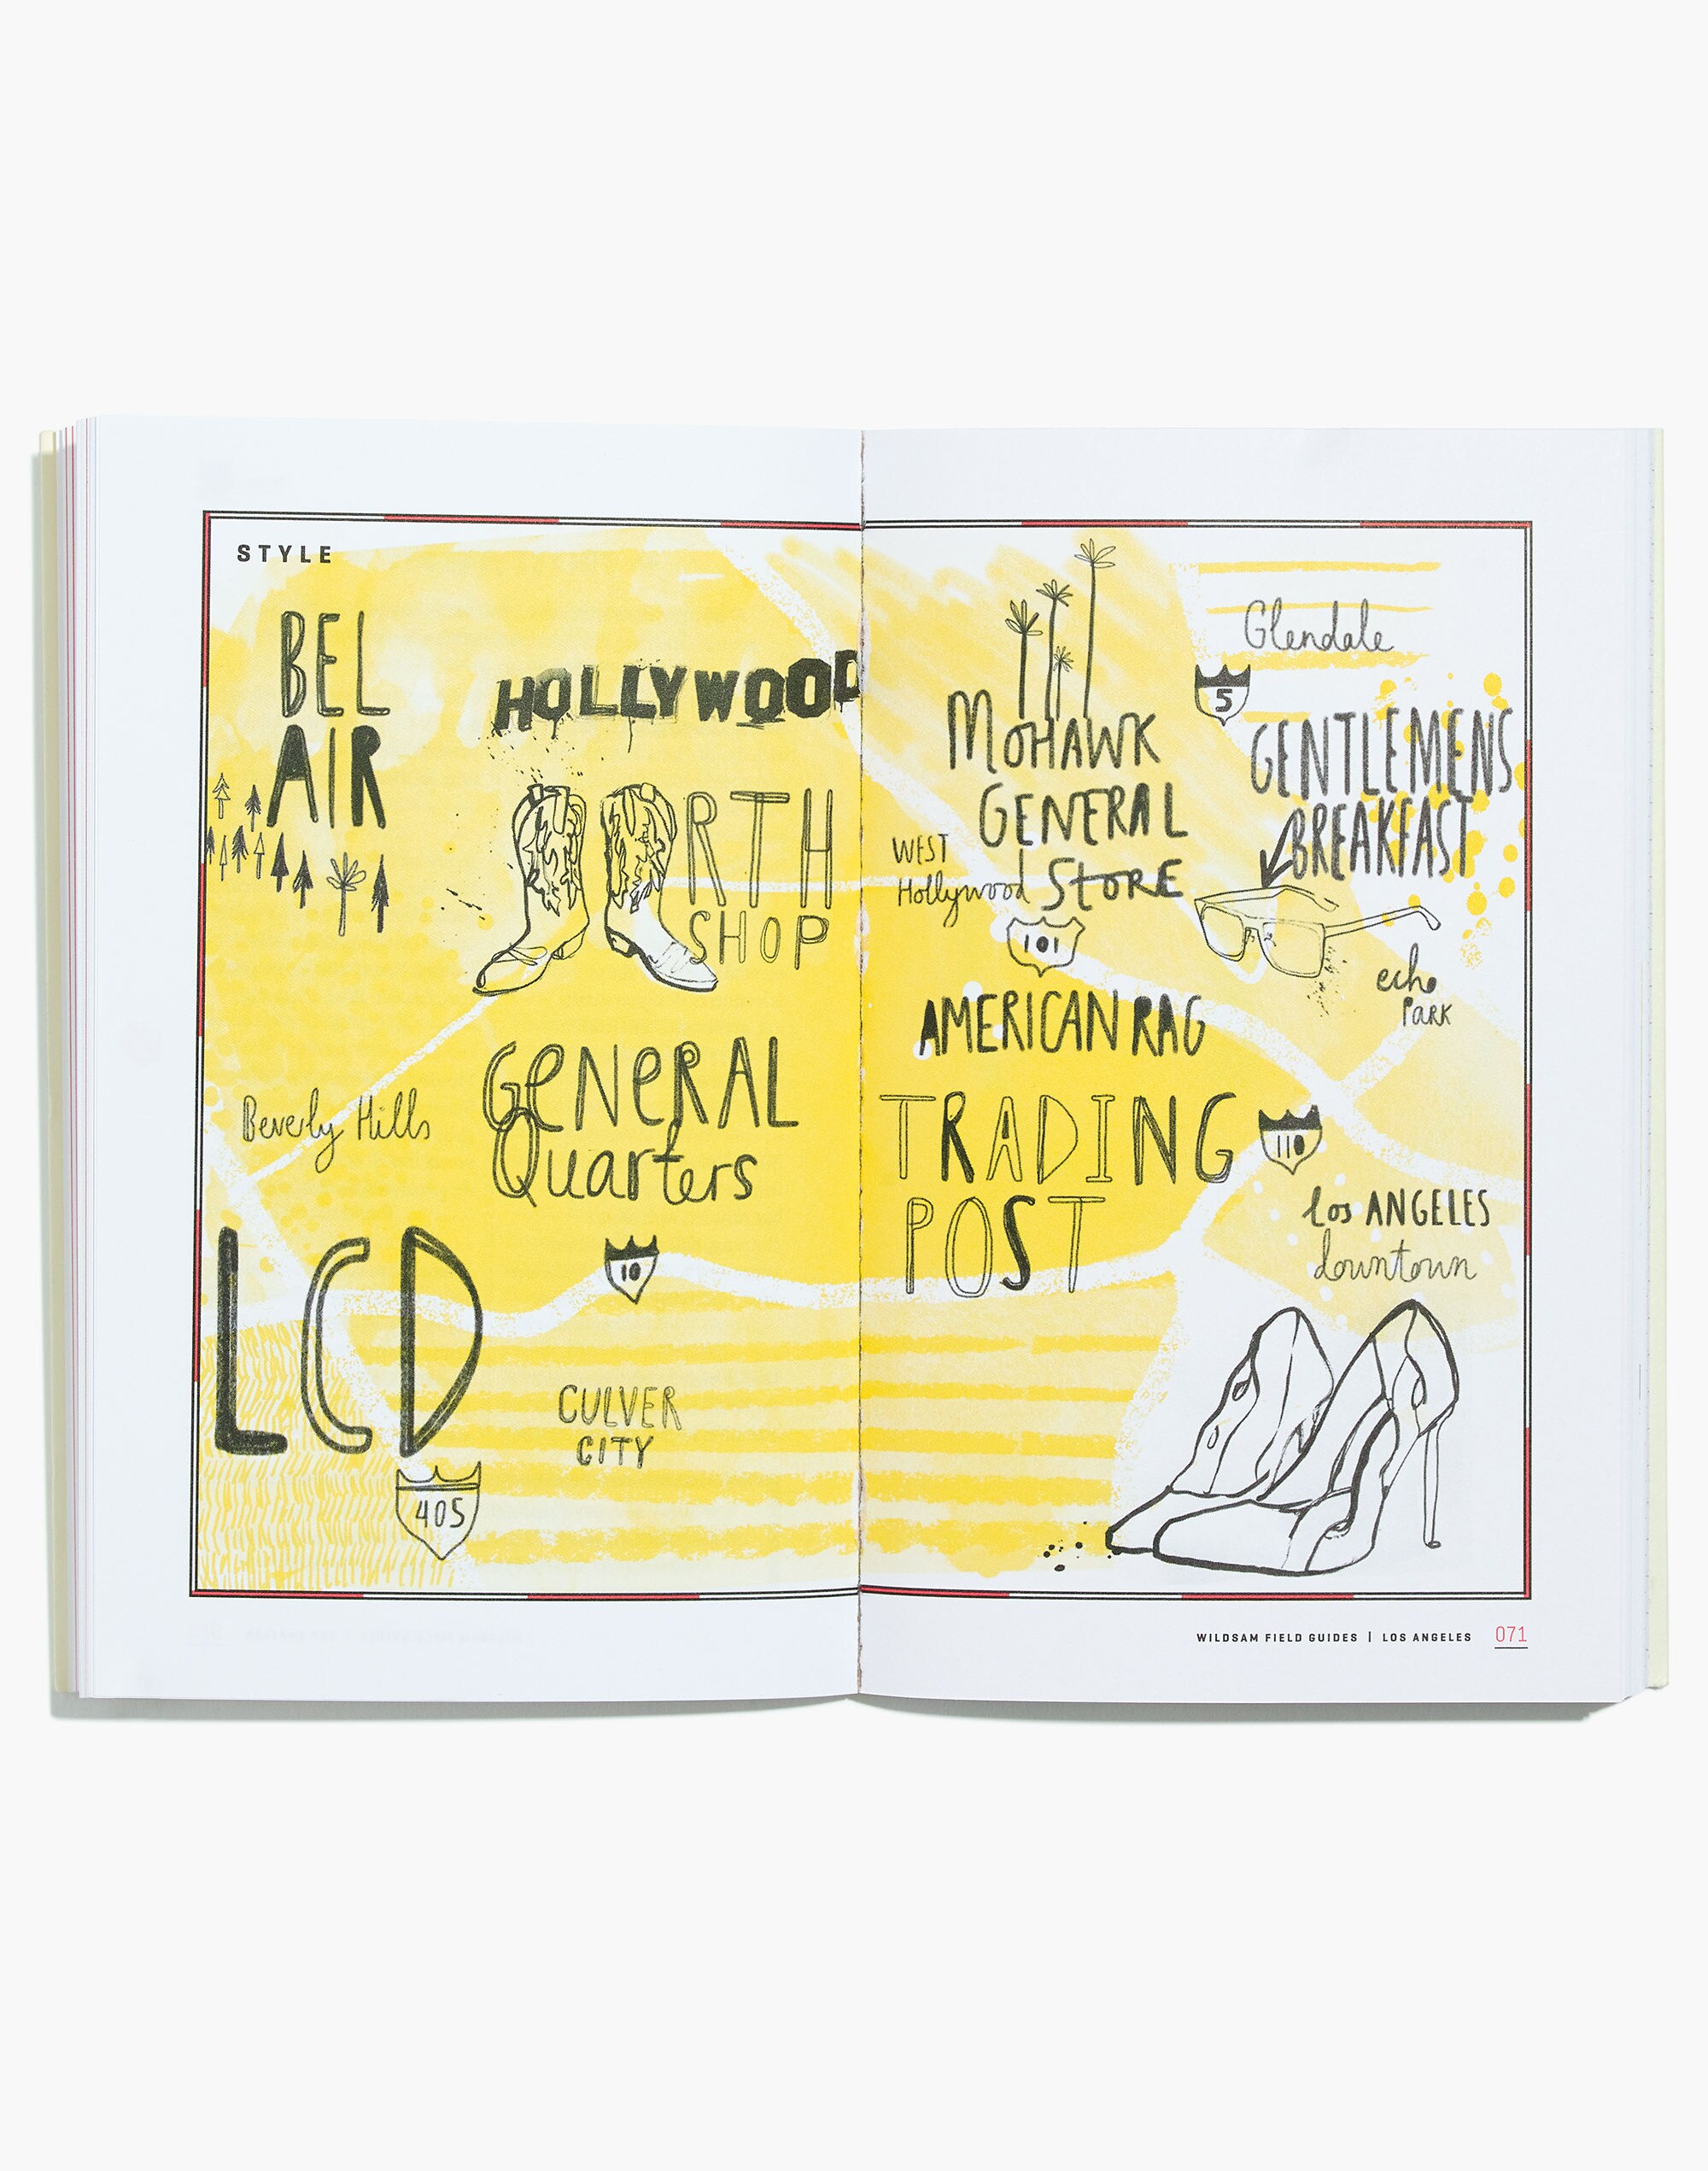 STYLE
BEL
AIR
HOLLYWOOD
RTH
SHOP
GENERAL
Quarters
Beverly Hills
LCD
10
CULVER
CITY
405
Glendale
5
MOHAWK
GENERAL
STORE
WEST
Hollywood
101
GENTLEMENS
BREAKFAST
echo
PARK
AMERICAN RAG
TRADING
POST
110
los ANGELES
downtown
WILDSAM FIELD GUIDES | LOS ANGELES 071